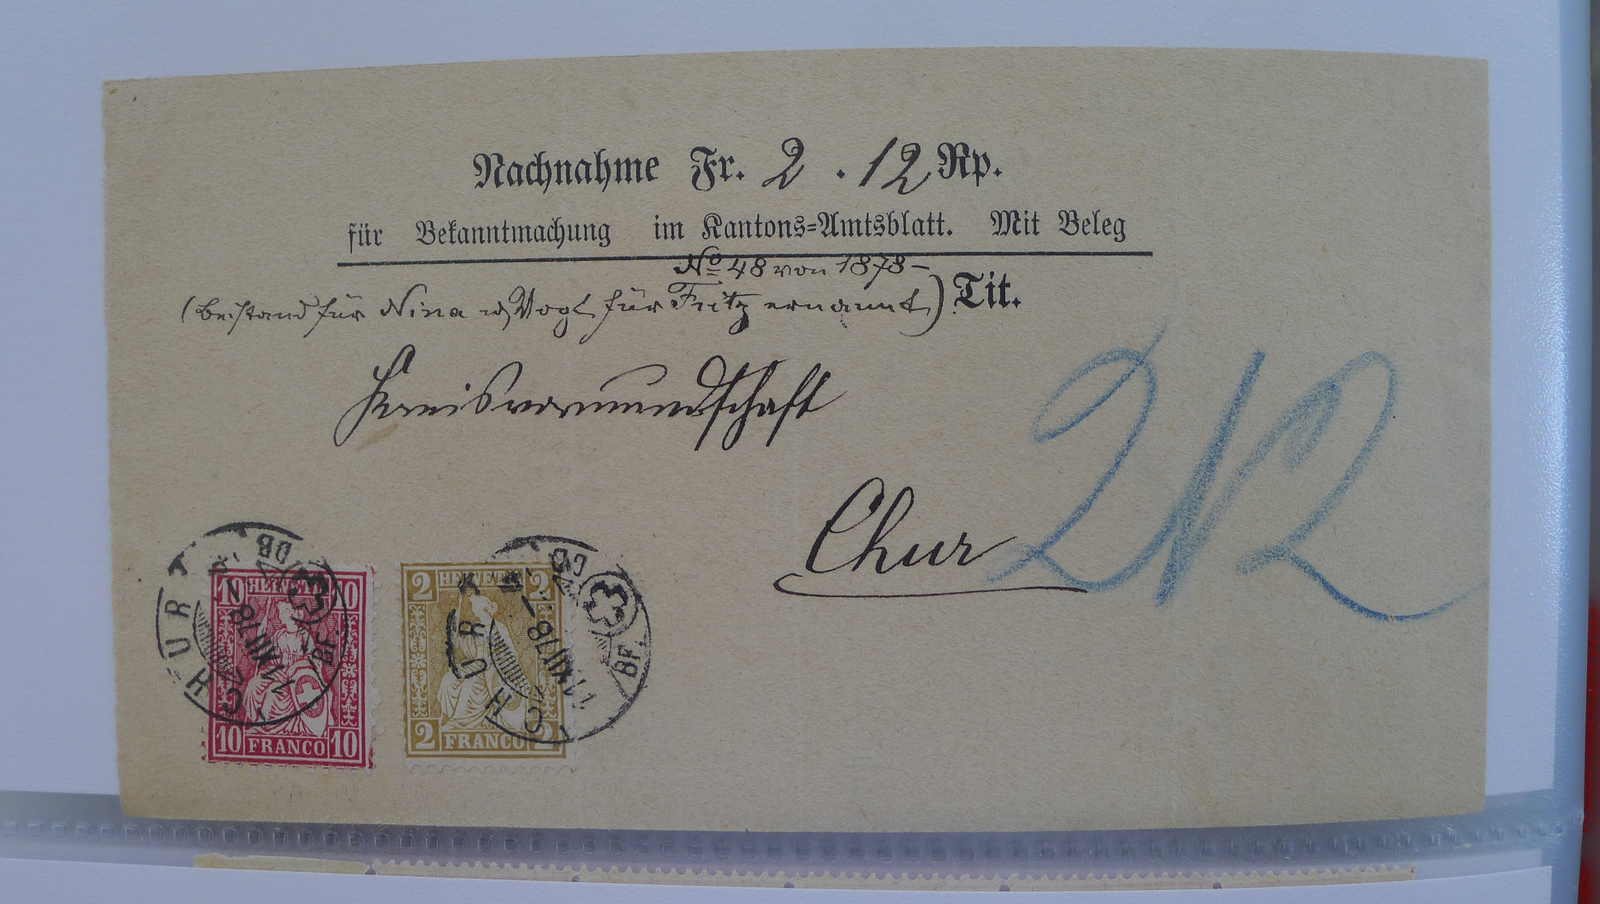 Nachnahme Fr. 2.12 Rp.
für Bekanntmachung im Kantons=Amtsblatt. Mit Beleg
No 48 von 1878 –
(Beistand für Nina u. Vogt für Fritz ernannt) Tit.
Kreisvormundschaft
Chur
212
CHUR BF.
11 XII 78
10 HELVETIA 10
10 FRANCO 10
CHUR BF.
11 XII 78
2 HELVETIA 2
2 FRANCO 2